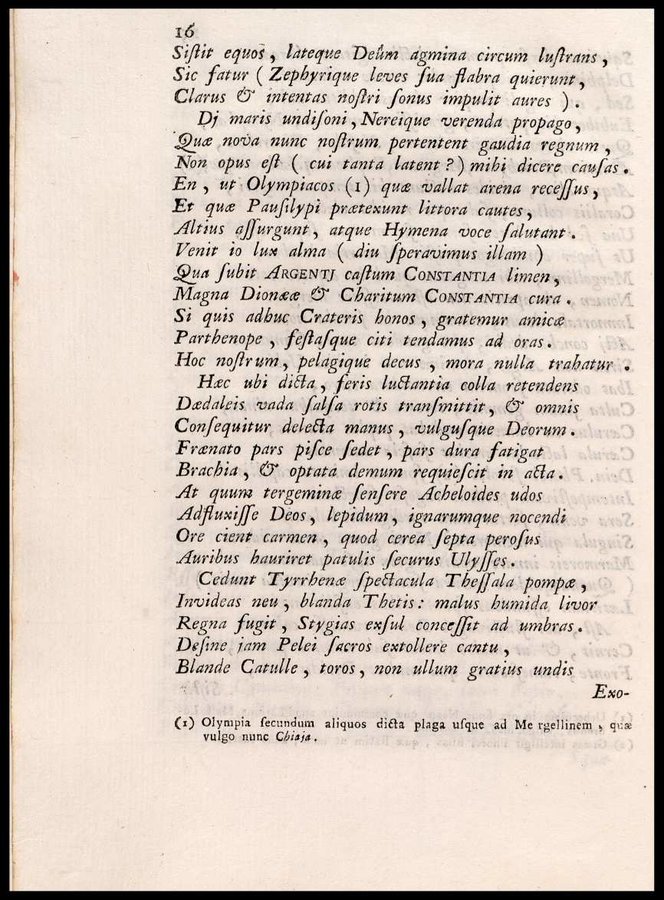 16
Siſtit equos, lateque Deûm agmina circum luſtrans,
Sic fatur ( Zephyrique leves ſua flabra quierunt,
Clarus & intentas noſtri ſonus impulit aures ).
Dj maris undiſoni, Nereique verenda propago,
Quæ nova nunc noſtrum pertentent gaudia regnum,
Non opus eſt ( cui tanta latent? ) mihi dicere cauſas.
En, ut Olympiacos (1) quæ vallat arena receſſus,
Et quæ Pauſilypi prætexunt littora cautes,
Altius aſſurgunt, atque Hymena voce ſalutant.
Venit io lux alma ( diu ſperavimus illam )
Qua ſubit ARGENTJ caſtum CONSTANTIA limen,
Magna Dionææ & Charitum CONSTANTIA cura.
Si quis adhuc Crateris honos, gratemur amicæ
Parthenope, feſtaſque citi tendamus ad oras.
Hoc noſtrum, pelagique decus, mora nulla trahatur.
Hæc ubi dicta, feris luctantia colla retendens
Dædaleis vada ſalſa rotis tranſmittit, & omnis
Conſequitur delecta manus, vulguſque Deorum.
Frænato pars piſce ſedet, pars dura fatigat
Brachia, & optata demum requieſcit in acta.
At quum tergeminæ ſenſere Acheloides udos
Adfluxiſſe Deos, lepidum, ignarumque nocendi
Ore cient carmen, quod cerea ſepta peroſus
Auribus hauriret patulis ſecurus Ulyſſes.
Cedunt Tyrrhenæ ſpectacula Theſſala pompæ,
Invideas neu, blanda Thetis: malus humida livor
Regna fugit, Stygias exſul conceſſit ad umbras.
Deſine jam Pelei ſacros extollere cantu,
Blande Catulle, toros, non ullum gratius undis
Exo-
(1) Olympia ſecundum aliquos dicta plaga uſque ad Mergellinem, quæ
vulgo nunc Chiaja.